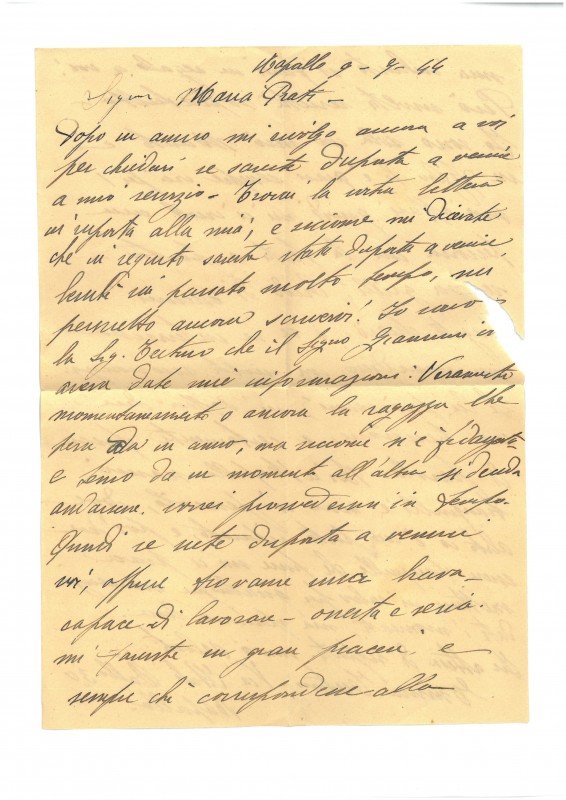 Rapallo 9-9-44
Signora Maria Prati -
Dopo un anno mi rivolgo ancora a voi
per chiedervi se sareste disposta a venire
a mio servizio - Trovai la vostra lettera
in risposta alla mia; e siccome mi dicevate
che in seguito sareste stata disposta a venire
benchè sia passato molto tempo, mi
permetto ancora scrivervi! Io sono
la Sig. che il Signor Giannini vi
aveva date mie informazioni: Veramente
momentaneamente o ancora la ragazza che
tera da un anno, ma siccome si è fidanzata
e temo da un momento all'altro si decida
andarsene. vorrei provvedermi in tempo.
Quindi se siete disposta a venire
voi, oppure trovarne una brava
capace di lavorare - onesta e seria.
mi fareste un gran piacere, e
sempre che corrispondesse alla